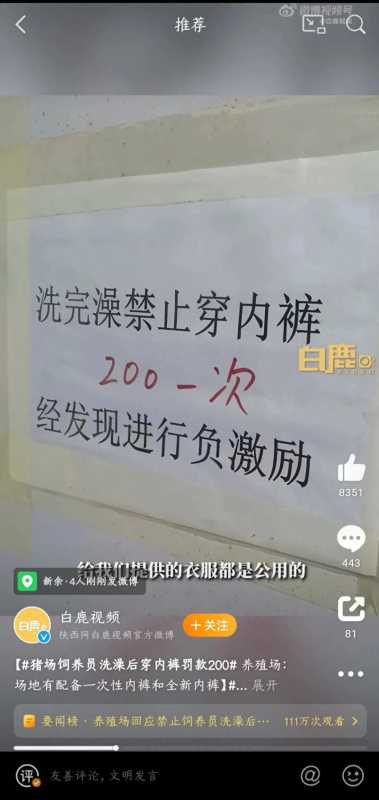 推荐
微博视频号
洗完澡禁止穿内裤
200一次
经发现进行负激励
白鹿
8351
443
给我们提供的衣服都是公用的
新余·4人刚刚发微博
81
白鹿视频
陕西网白鹿视频官方微博
+关注
【#猪场饲养员洗澡后穿内裤罚款200# 养殖场:
场地有配备一次性内裤和全新内裤】#... 展开
要闻榜·养殖场回应禁止饲养员洗澡后… 111万次观看 >
评 友善评论,文明发言